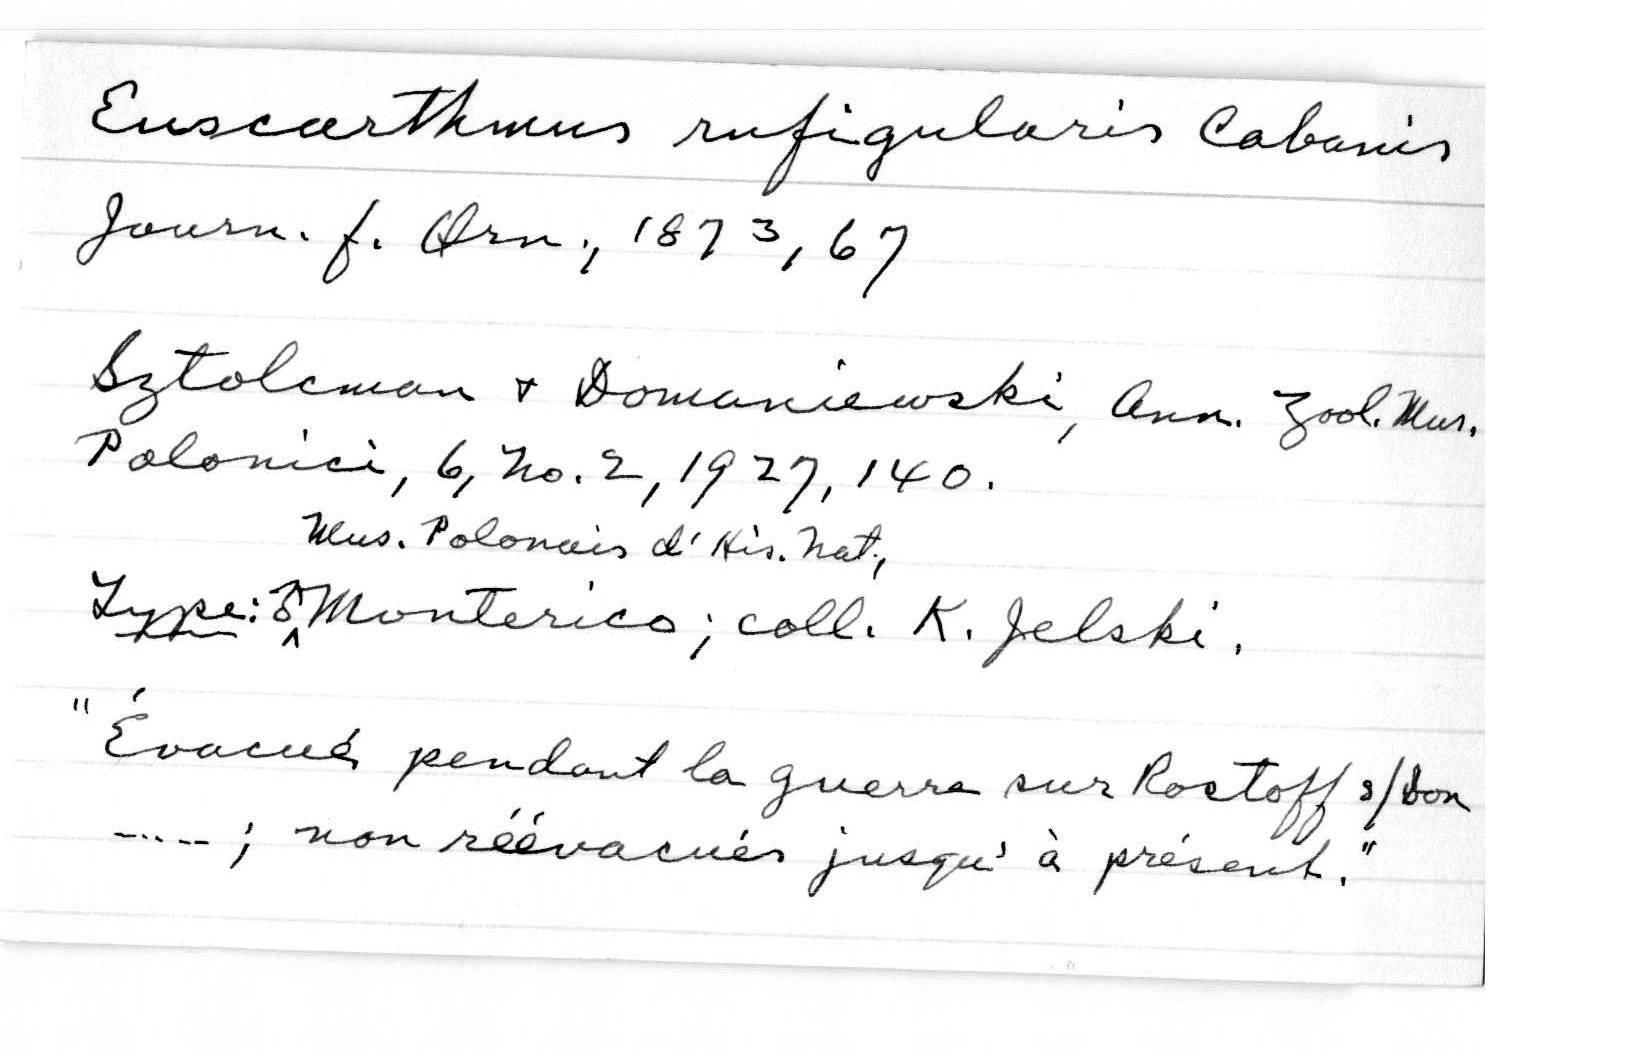 Euscarthmus rufigularis Cabanis
Journ. f. Orn., 1873, 67
Sztolcman + Domaniewski, Ann. Zool. Mus.
Polonici, 6, No. 2, 1927, 140.
Mus. Polonais d'His. Nat.,
Type: ♂ ^ Monterico; coll. K. Jelski.
"Évacué pendant la guerre sur Rostoff s/Don
-----; non réévacués jusqu' à présent."